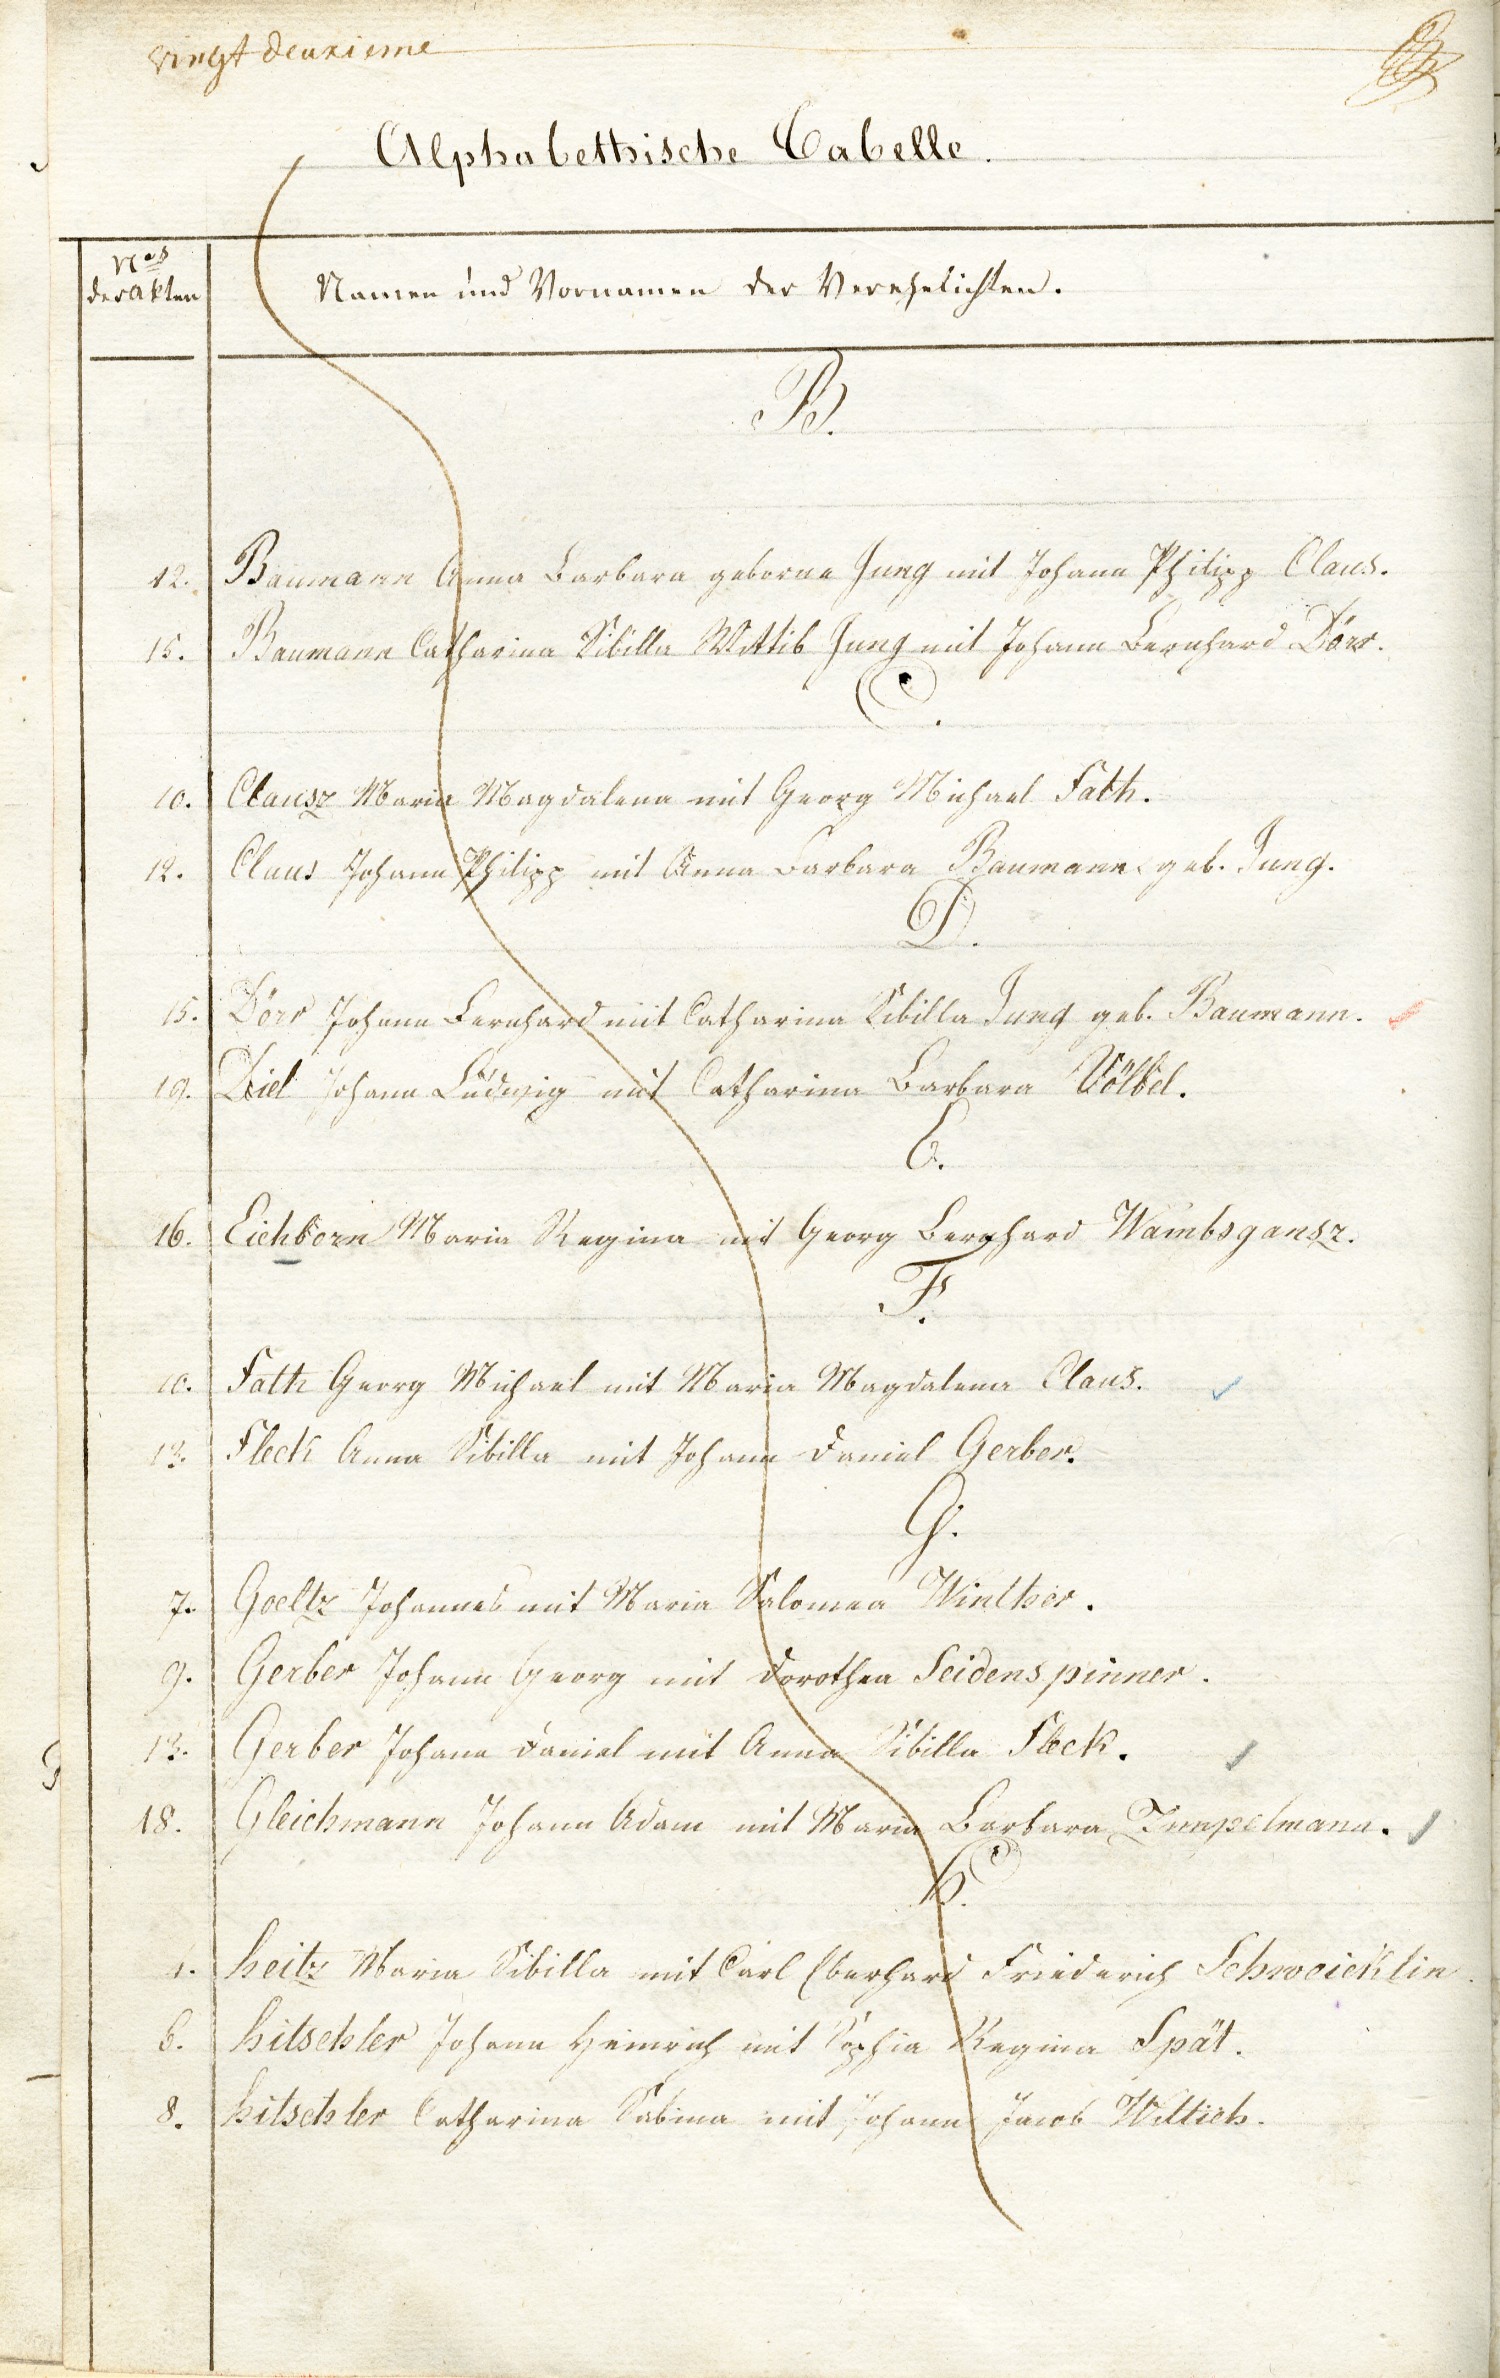 vingt deuxieme
Alphabethische Tabelle.
Nos
der Akten
Namen und Vornamen der Verehelichten.
B.
12. Baumann Anna Barbara geborne Jung mit Johann Philipp Claus.
15. Baumann Catharina Sibilla Wittib Jung mit Johann Bernhard Dörr.
C.
10. Clausz Maria Magdalena mit Georg Michael Fath.
12. Claus Johann Philipp mit Anna Barbara Baumann geb. Jung.
D.
15. Dörr Johann Bernhard mit Catharina Sibilla Jung geb. Baumann.
19. Diel Johann Ludwig mit Catharina Barbara Völkel.
E.
16. Eichborn Maria Regina mit Georg Bernhard Wambsgansz.
F.
10. Fath Georg Michael mit Maria Magdalena Claus.
13. Fleck Anna Sibilla mit Johann Daniel Gerber.
G.
7. Goeltz Johannes mit Maria Salomea Winther.
9. Gerber Johann Georg mit Dorothea Seidenspinner.
13. Gerber Johann Daniel mit Anna Sibilla Fleck.
18. Gleichmann Johann Adam mit Maria Barbara Zimpelmann.
H.
Heitz Maria Sibilla mit Carl Eberhard Friederich Schweicklin
6. Hitschler Johann Heinrich mit Sophia Regina Spät.
8. Hitschler Catharina Sabina mit Johann Jacob Wittich.